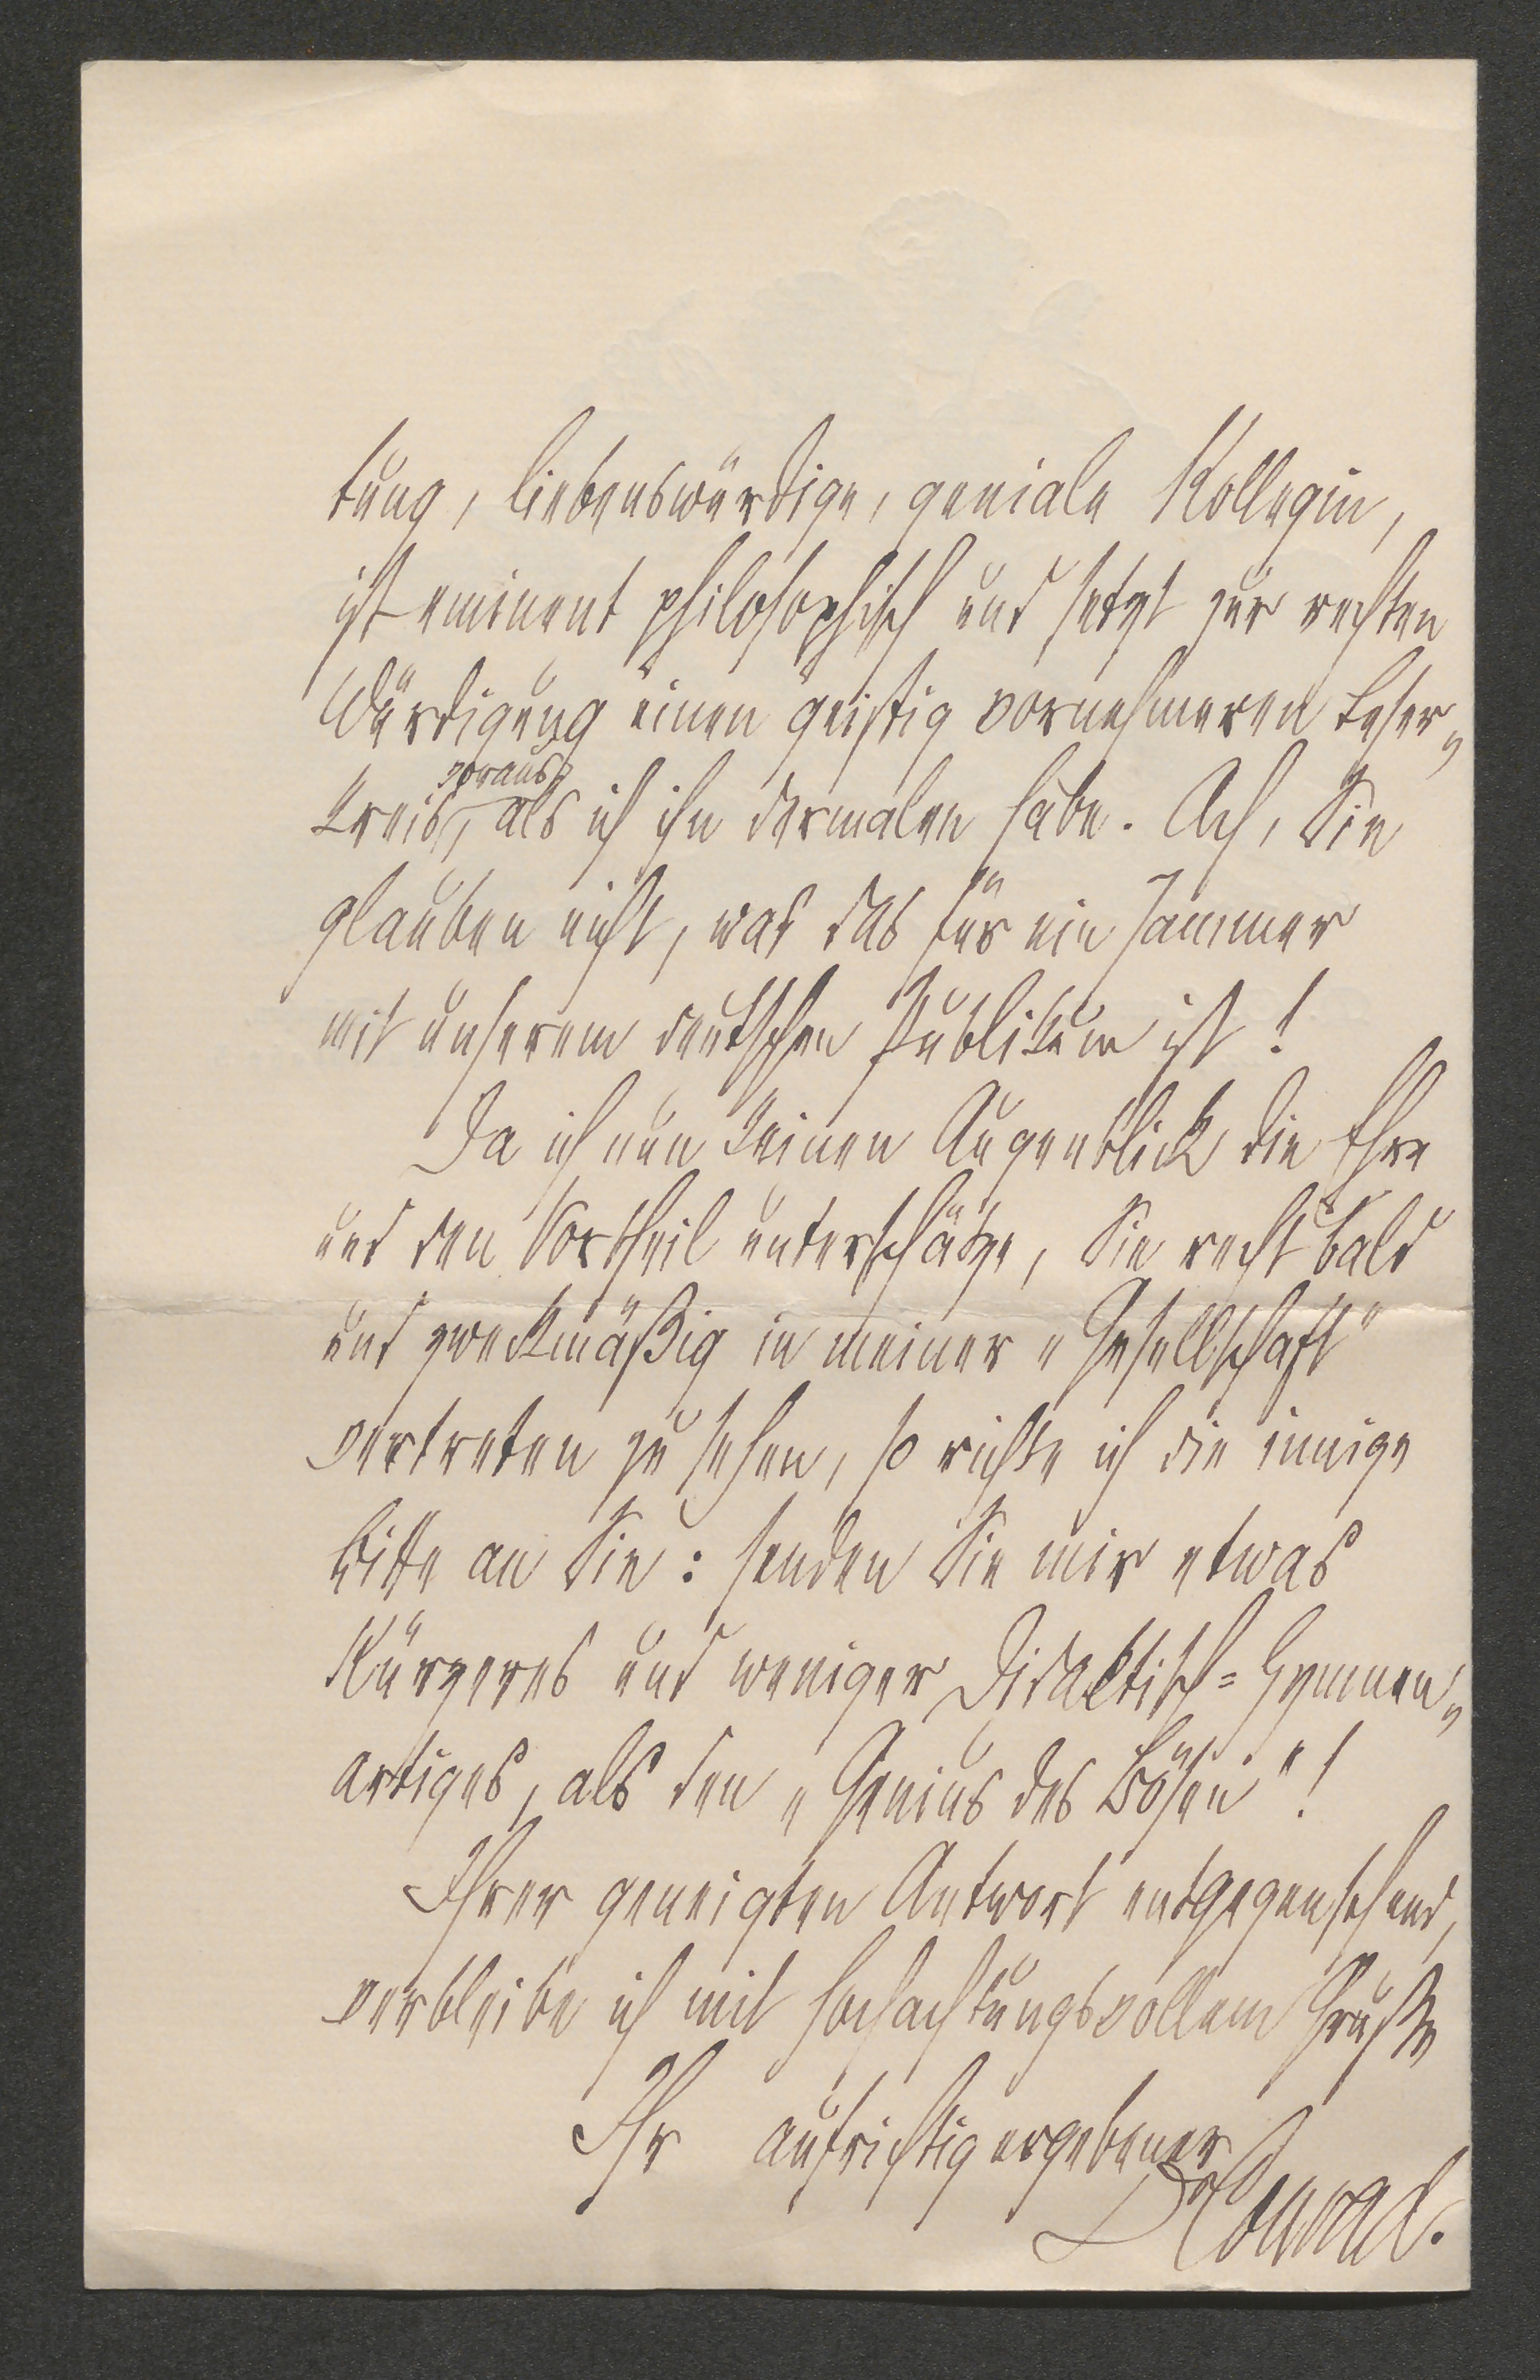 tung, liebenswürdige, geniale Kollegin,
ist eminent philosophisch und setzt zur rechten
Würdigung einen geistig vornehmeren Leser„
voraus
kreis, als ich ihn dermalen habe. Ach, Sie
glauben nicht, was das für ein Jammer
mit unserem deutschen Publikum ist!
Da ich nun keinen Augenblick die Ehre
und den Vortheil unterschätze, Sie recht bald
und zweckmäßig in meiner „Gesellschaft"
vertreten zu sehen, so richte ich die innige
Bitte an Sie: senden Sie mir etwas
Kürzeres und weniger Didaktisch=Hymnen„
artiges, als den „Genius des Bösen"!
Ihrer geneigten Antwort entgegensehend,
verbleibe ich mit hochachtungsvollem Gruße
Ihr aufrichtig ergebener
Dr Conrad.